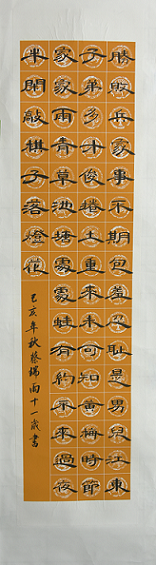 勝敗兵家事不期包羞忍恥是男兒江東
子弟多才俊捲土重來未可知黃梅時節
家家雨青草池塘處處蛙有約不來過夜
半閒敲棋子落燈花
己亥年秋蔡瑞雨十一歲書